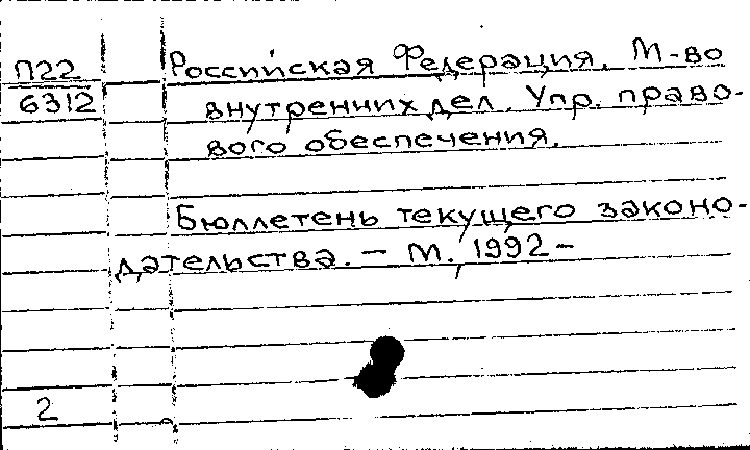 П22
6312
Российская Федерация. М-во
внутренних дел. Упр. право-
вого обеспечения.
Бюллетень текущего законо-
дательства. — М., 1992 –
2